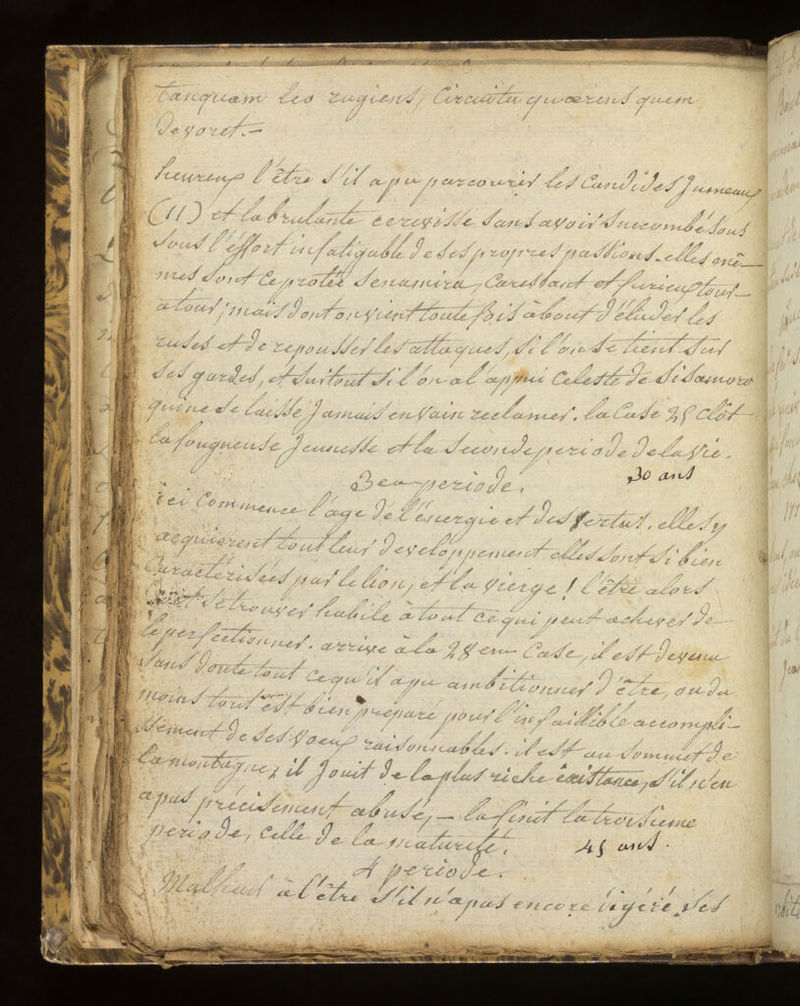 tanquam leo rugiens, circuitu quærens quem
devoret.-
heureux l'être s'il a pu parcourir les candides Jumeaux
(II) et la brulante ecrevisse sans avoir succombé sous
sous l'éffort infatigable de ses propres passions. elles mê-
mes sont ce protée caressant et furieux tour-
atour; mais dont on vient toute fois à bout d'éluder les
ruses et de repousser les attaques, si l'on se tient sur
ses gardes, et surtout si l'on a l'appui celeste de
qui ne se laisse Jamais en vain reclamer. la Case 25 clôt
la fougueuse Jeunesse et la seconde periode de la vie.
3em periode. 30 ans
ici Commence l'age de l'énergie et des vertus. elles y
acquierent tout leur developpement elles sont si bien
Caractérisées par le lion, et la vierge! l'être alors
se trouver habile à tout ce qui peut achever de
le perfectionner. arrive à la 28em Case, il est devenu
sans doute tout ce qu'il a pu ambitionner d'être, ou du
moins tout est bien preparé pour l'infaillible accompli-
ssement de ses voeux raisonnables. il est au sommet de
la montagne; il Jouit de la plus riche existance, s'il n'en
a pas précisement abusé, - la finit la troisieme
periode, celle de la maturité. 45 ans.
4 periode.
Malheur à l'être s'il n'a pas encore digéré ses